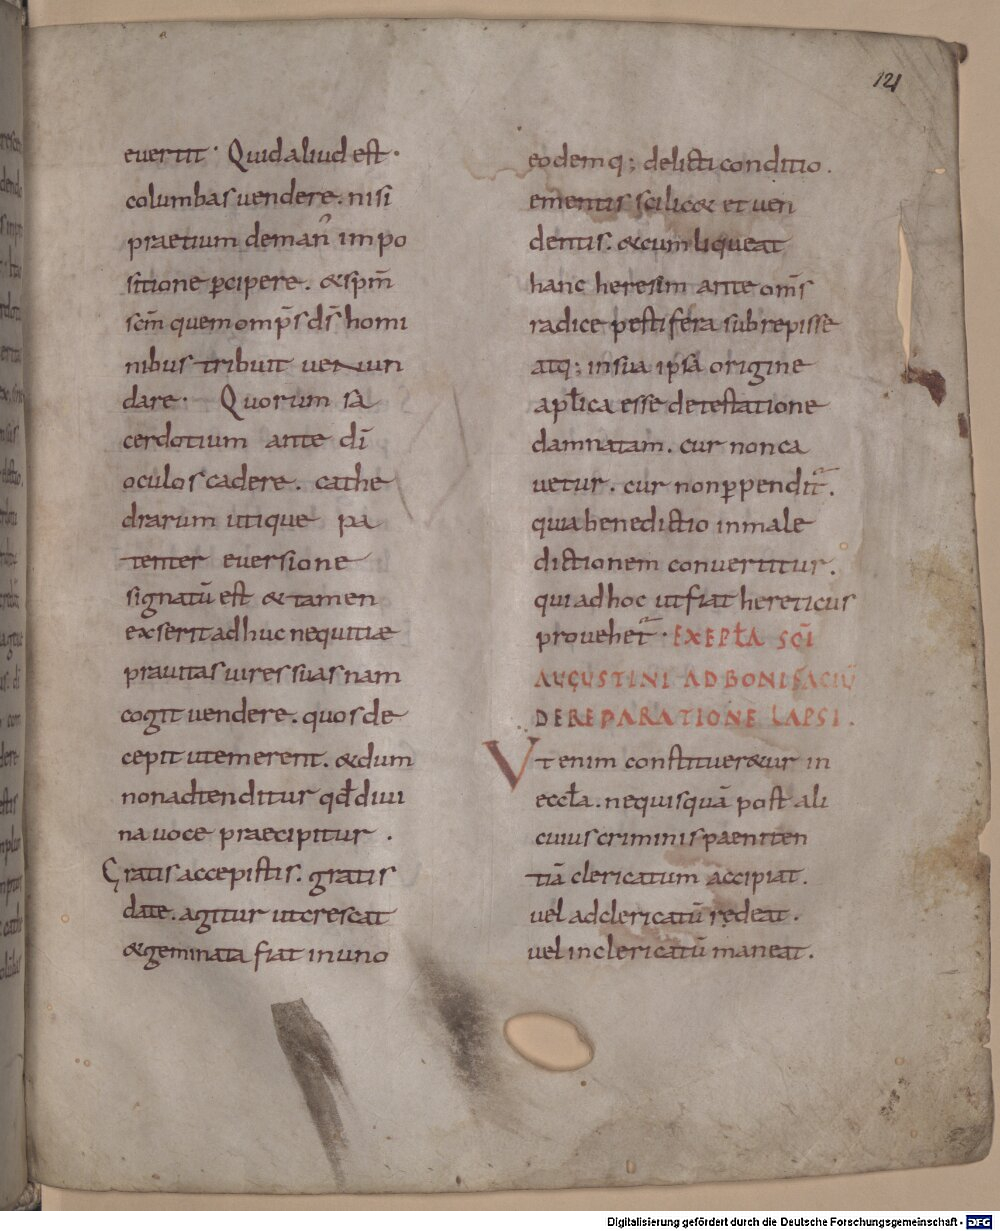 121
evertit· Quid aliud est·
columbas vendere. nisi
praetium de man̄ impo
sitione p̲cipere. & sp̄m
sc̄m quem omp̄s ds̄ homi
nibus tribuit venun
dare· Quorum sa
cerdotium ante dī
oculos cadere. cathe
drarum utique pa
tenter eversione
signatū est & tamen
exserit adhuc nequitiæ
pravitas vires suas nam
cogit vendere. quos de
cepit ut emerent. & dum
non adtenditur qđ divi
na voce praecipitur.
Gratis accepistis. gratis
date. agitur ut crescat
& geminata fiat in uno
eodemq; delicti conditio.
ementis scilic& et ven
dentis. & cum liqueat
hanc heresim ante om̄s
radice pestifera subrepisse
atq; in sua ipsa origine
aplica esse detestatione
damnatam. cur non ca
vetur. cur non p̲penditr̄.
quia benedictio in male
dictionem convertitur.
qui ad hoc ut fiat hereticus
provehetr̄· EXEPLA SCĪ
AUGUSTINI AD BONIFACIŪ
DE REPARATIONE LAPSI.
Ut enim constituer&ur in
eccła. ne quisquā post ali
cuius criminis paeniten
tiā clericatum accipiat.
vel ad clericatū redeat.
vel in clericatū maneat.
Digitalisierung gefördert durch die Deutsche Forschungsgemeinschaft - DFG